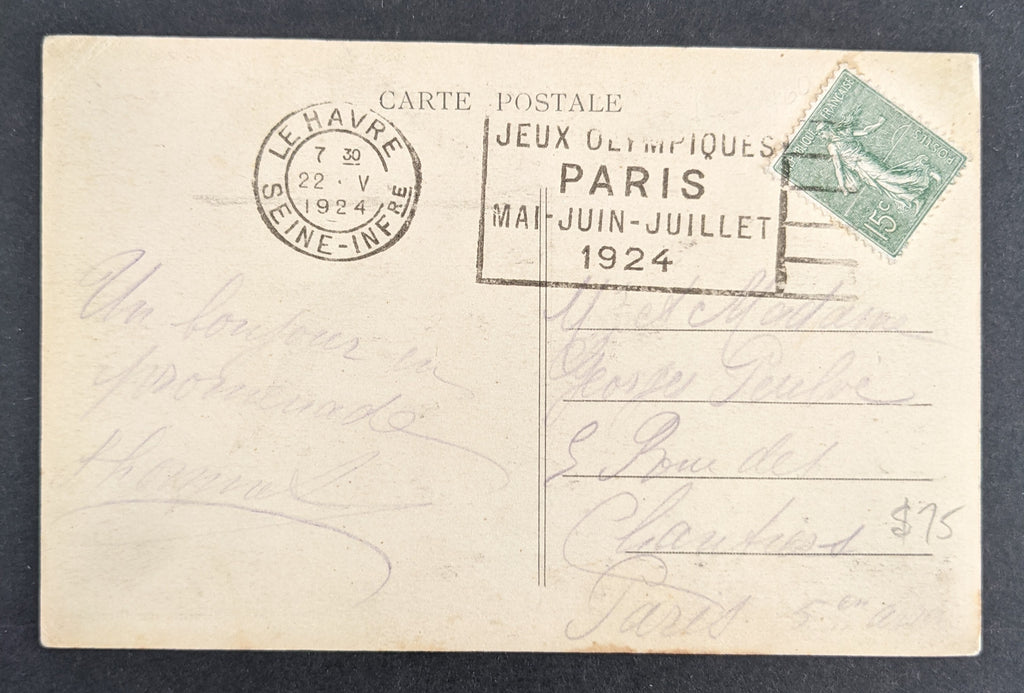 CARTE POSTALE
LE HAVRE
7 30
22 · V
1924
SEINE-INFRE
JEUX OLYMPIQUES
PARIS
MAI-JUIN-JUILLET
1924
FRANÇAISE
POSTES
15c
Un bonjour en
promenade
Mr et Madame
Georges
5 Rue des
Chantiers
$75
Paris 5en